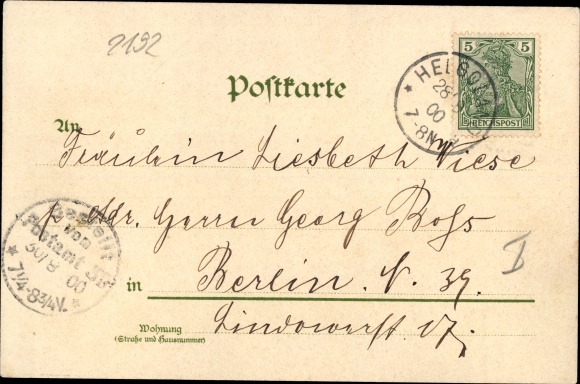 2192
Postkarte
5 5
REICHSPOST
HELGOLAND
28
00
7-8N
An
Fräulein Liesbeth Wiese
p. Adr. Herrn Georg Bohs
Bestellt
vom
Postamt 39
30/9 00
7¼-8¾V.
I
in Berlin. N. 39.
Wohnung
(Straße und Hausnummer)
Lindowerst 17.